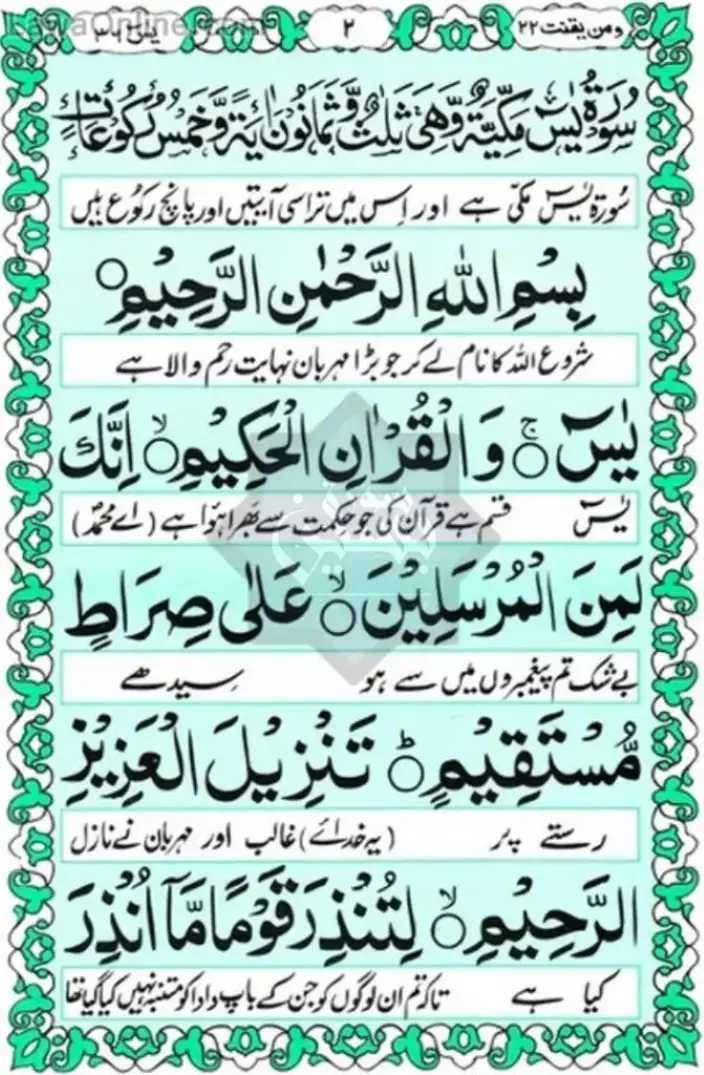 ومن یقنت ۲۲ ۲ یٰسٓ ۳۶
سُوْرَةُ يٰسٓ مَكِّيَّةٌ وَّهِيَ ثَلٰثٌ وَّثَمَانُوْنَ اٰيَةً وَّخَمْسُ رُكُوْعَاتٍ
سُورۃ یٰسٓ مکی ہے اور اِس میں تراسی آیتیں اور پانچ رکوع ہیں
بِسْمِ اللهِ الرَّحْمٰنِ الرَّحِيْمِ○
شروع اللہ کا نام لے کر جو بڑا مہربان نہایت رحم والا ہے
يٰسٓ ○ۚ وَالْقُرْاٰنِ الْحَكِيْمِ ○ۙ اِنَّكَ
یٰسٓ قسم ہے قرآن کی جو حکمت سے بھرا ہوا ہے (اے محمدؐ)
لَمِنَ الْمُرْسَلِيْنَ ○ۙ عَلٰى صِرَاطٍ
بے شک تم پیغمبروں میں سے ہو سیدھے
مُّسْتَقِيْمٍ ○ؕ تَنْزِيْلَ الْعَزِيْزِ
رستے پر (یہ خدائے) غالب اور مہربان نے نازل
الرَّحِيْمِ ○ۙ لِتُنْذِرَ قَوْمًا مَّاۤ اُنْذِرَ
کیا ہے تاکہ تم ان لوگوں کو جن کے باپ دادا کو متنبہ نہیں کیا گیا تھا